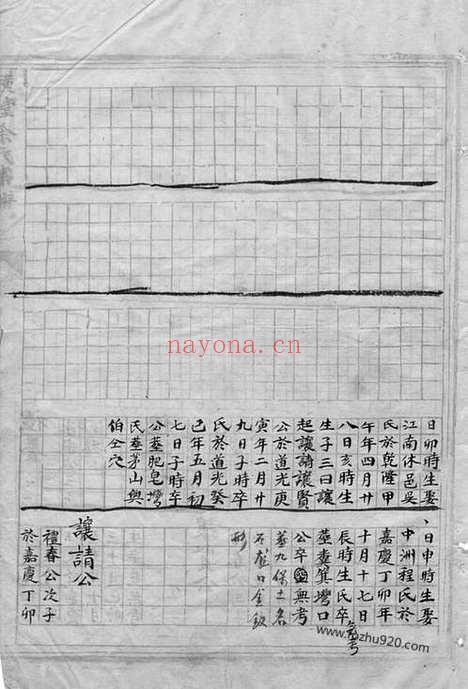 日卯時生娶
江南休邑吳
氏於乾隆甲
午年四月廿
八日亥時生
生子三曰讓
起讓請讓賢
公於道光庚
寅年二月廿
九日子時卒
氏於道光癸
巳年五月初
七日子時卒
公墓肥皂塆
氏墓茅山與
伯仝穴
日申時生娶
中洲程氏於
嘉慶丁卯年
十月十七日
辰時生氏卒
墓糞箕塆口
公卒無考
墓九保土名
石龍口金釵
形
讓請公
禮春公次子
於嘉慶丁卯
nayona.cn
www.fozhu920.com